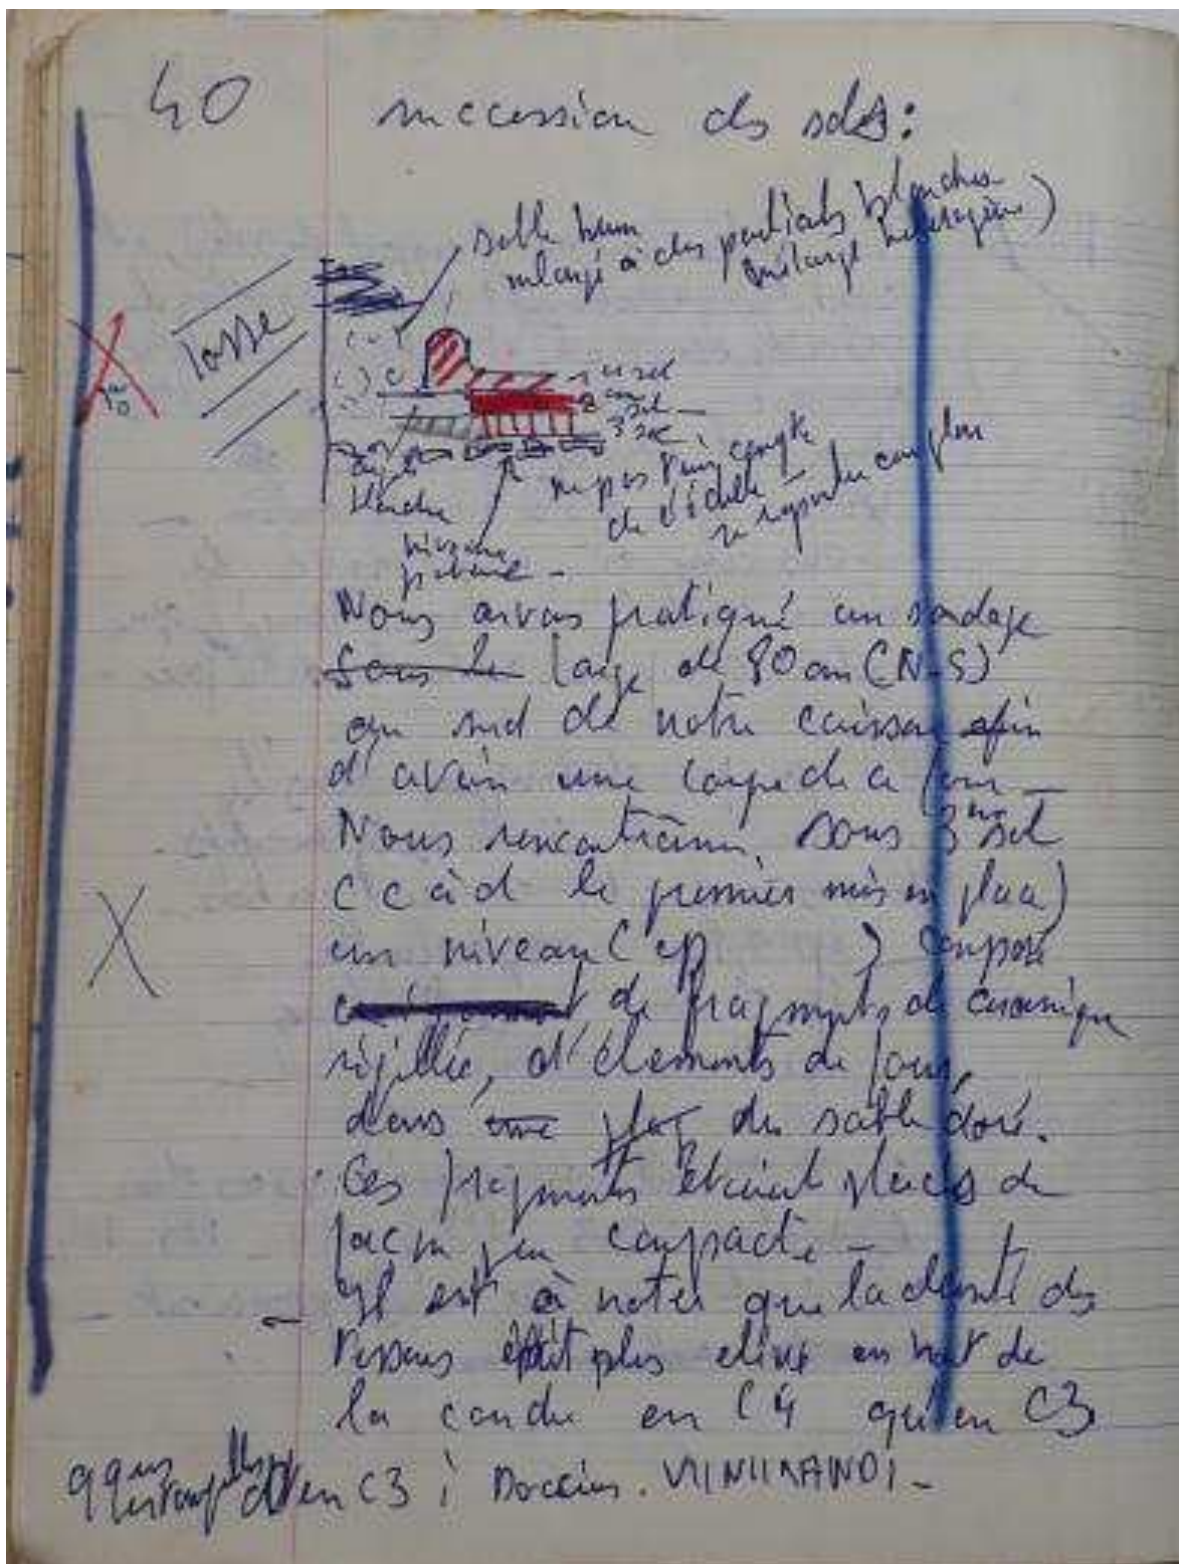 40
succession des sols:
sable brun
mélangé à des particules blanches
(mélange hétérogène)
fosse
1 er sol
2 sol
3 sol
blanche
niveau
ne pas tenir compte
de l'échelle -
se reporter au plan
Nous avons pratiqué un sondage
sous le large de 80 cm (N-S)
au sud de notre caisson afin
d'avoir une coupe de ce four -
Nous rencontrâmes, sous 3 sol
(c à d le premier mis en place)
un niveau (ep ) composé
de fragments de céramique
sigillée, d'éléments de four,
dans une du sable doré.
Ces fragments étaient placés de
façon peu compacte -
Il est à noter que la densité des
tessons était plus élevé en haut de
la couche en C4 qu'en C3
en C3 ;